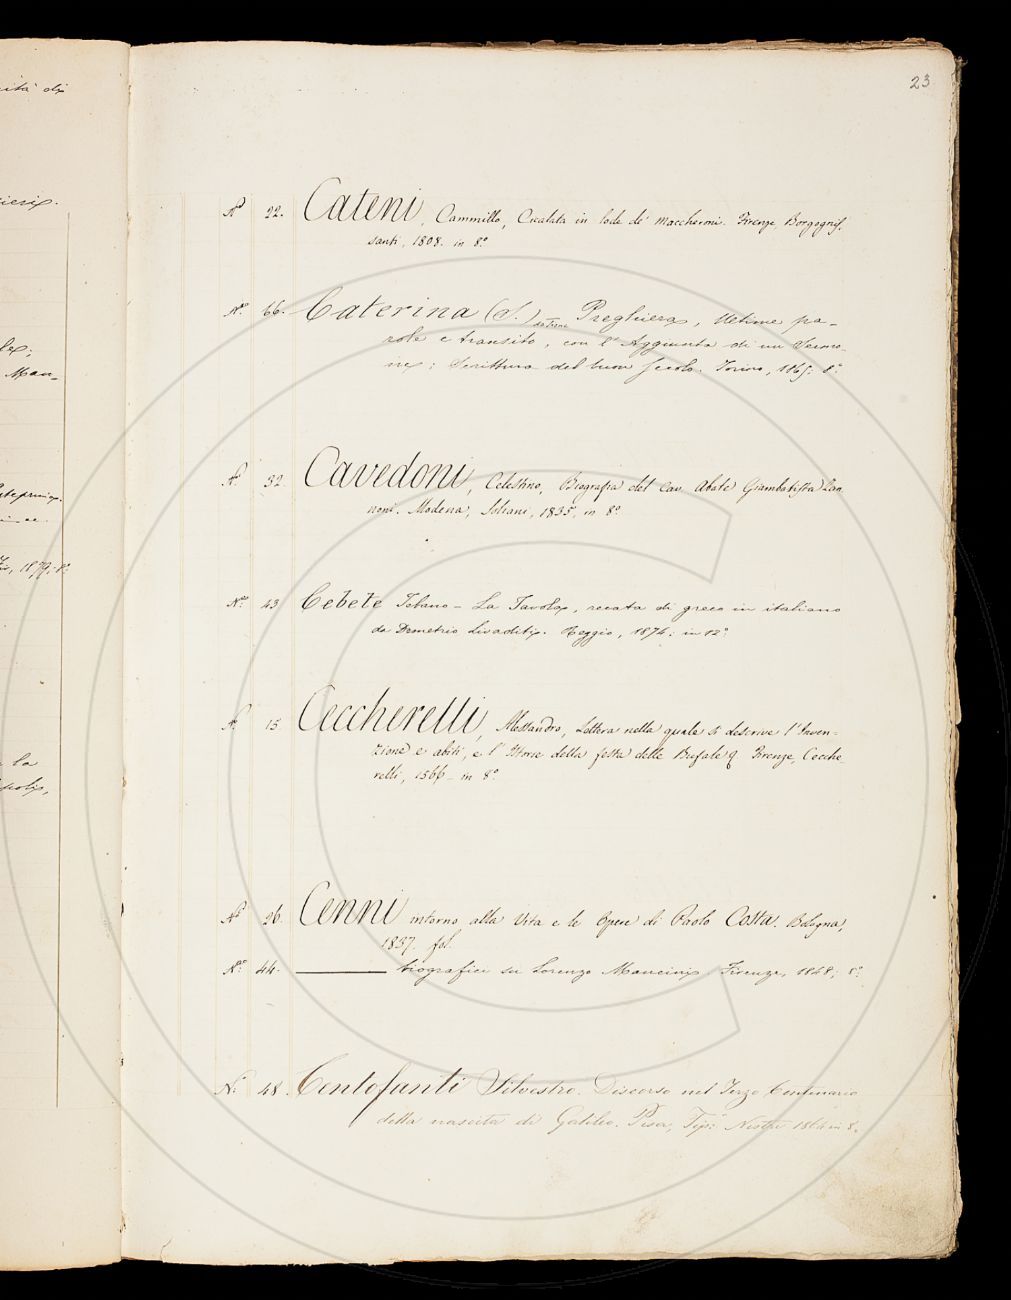 23
N.º 22. Cateni, Cammillo, Cicalata in lode de' Maccheroni. Firenze, Borgognis-
santi, 1808. in 8.º
N.º 66. Caterina (S.) da Siena Preghiera, Ultime pa-
role e transito, con l'Aggiunta di un Sermo-
ne; Scrittura del buon secolo. Torino, 8.º
N.º 32. Cavedoni, Celestino, Biografia del Cav. Abate Giambatista Zan
noni. Modena, Soliani, 1835. in 8.º
N.º 43 Cebete Tebano - La Tavola, recata di greco in italiano
da Demetrio Livaditi. Reggio, 1874; in 12.º
N.º 15. Ceccherelli, Alessandro, Lettera nella quale si descrive l'Inven-
zione e abiti, e l' Storie della festa delle Bufale Firenze, Cecche-
relli, 1566 - in 8.º
N.º 26. Cenni intorno alla Vita e le Opere di Paolo Costa. Bologna,
1837. fol.
N.º 44. ——— biografici su Lorenzo Mancini. Firenze, 1848; 8.º
N.º 48. Centofanti Silvestro. Discorso nel Terzo Centenario
della nascita di Galileo. Pisa, Tip.ª Nistri 1864 in 8.º
ità di
ieri.
le;
Man-
1879; 8.º
la